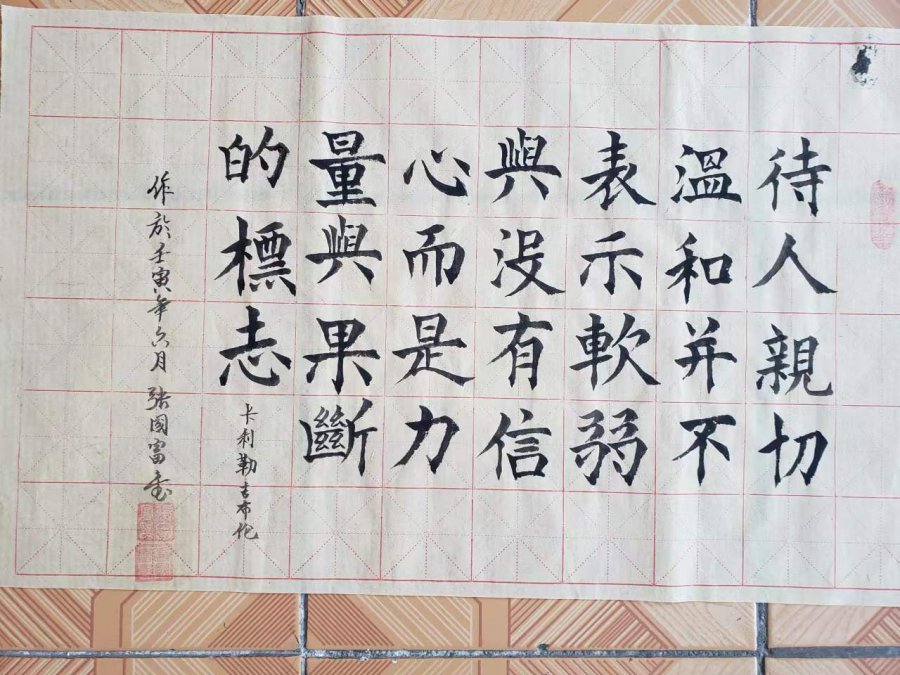 待人親切
溫和并不
表示軟弱
與没有信
心而是力
量與果斷
的標志
卡利勒吉布伦
作於壬寅年六月張國富書